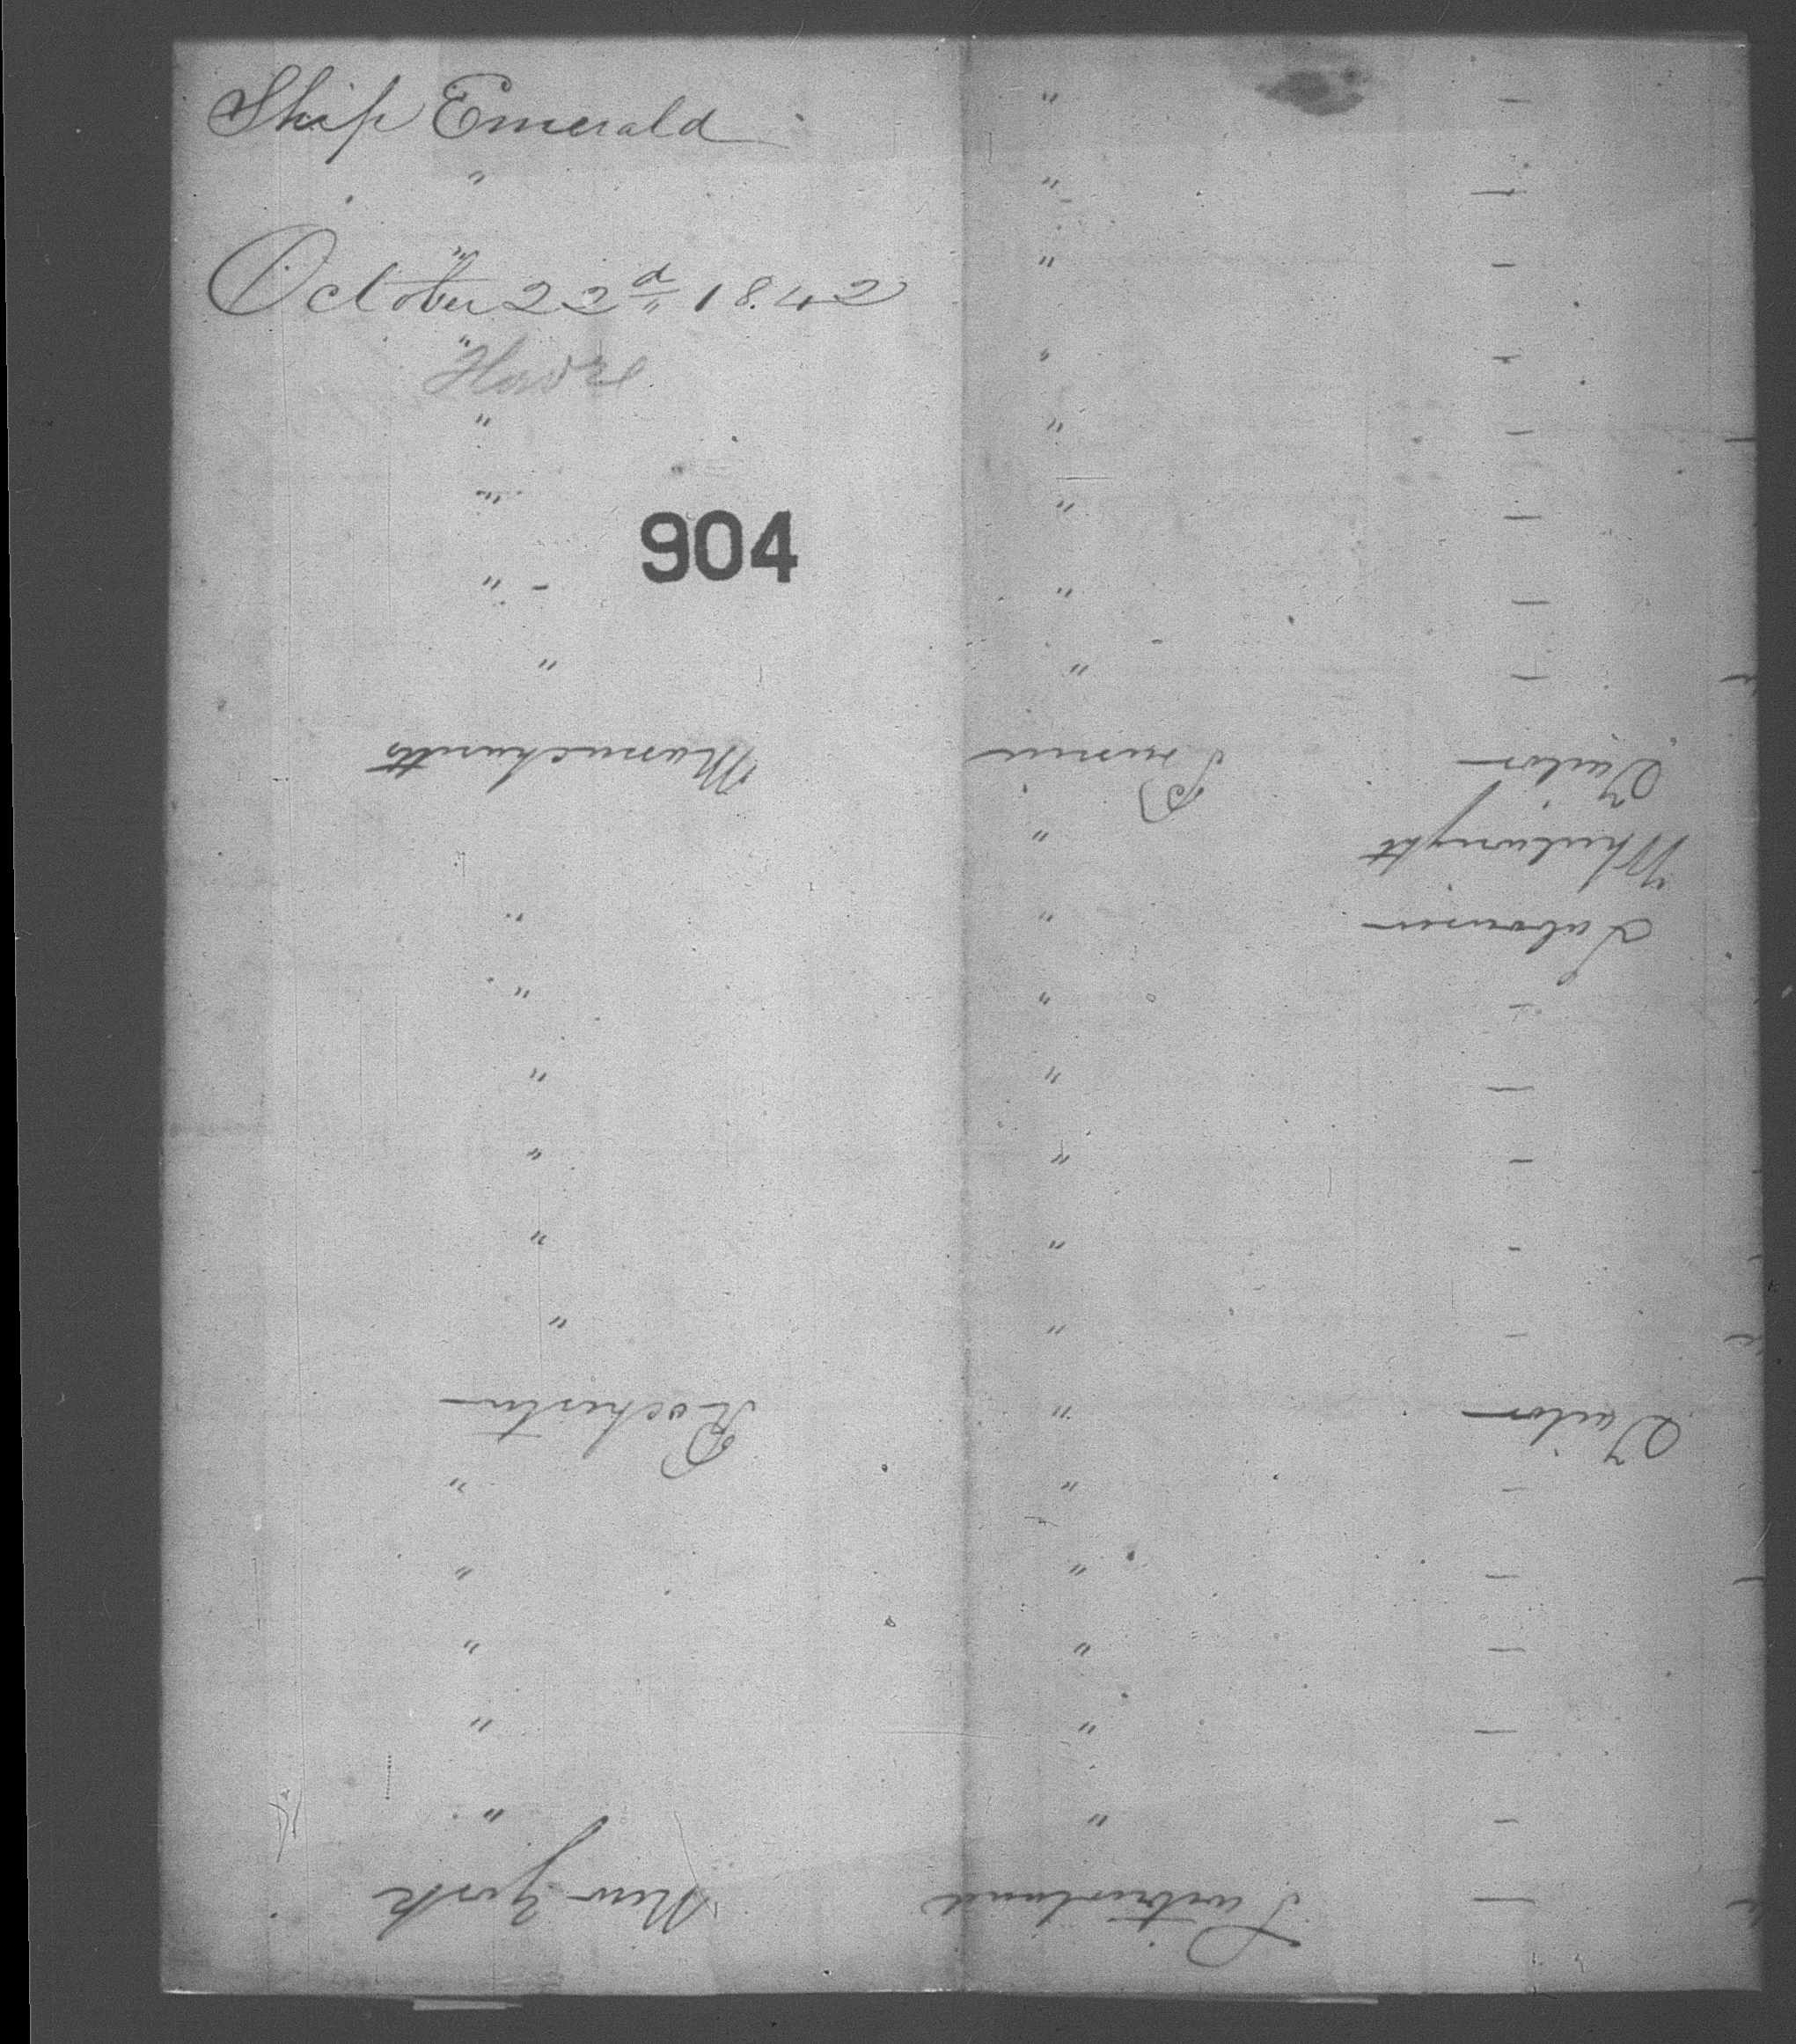 Ship Emerald
October 22d 1842
Havre
904
— Switzerland New York
— " "
— " "
— " "
— " "
— " "
Tailor " Rochester
— " "
— " "
— " "
— " "
— " "
Labourer " "
Wheelwright "
Tailor Prussia Massachusetts
— " "
— " "
— " "
— " "
— " "
— " "
— " "
— "